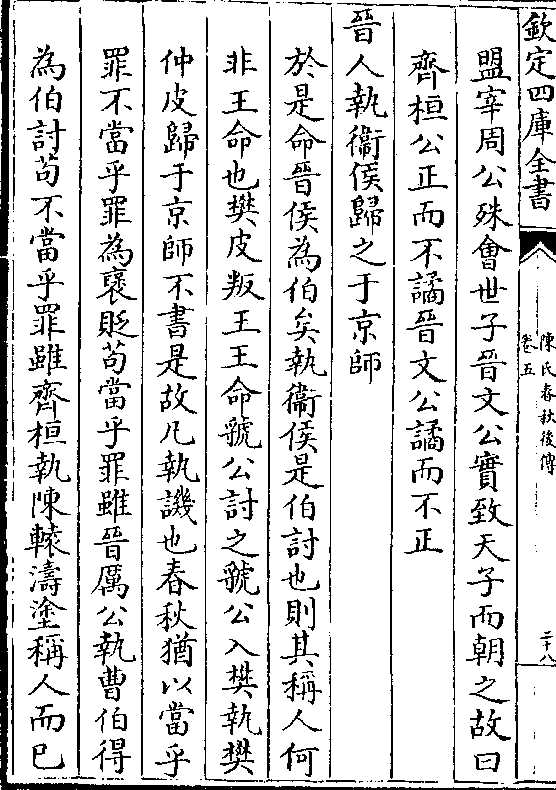 欽定四庫全書
陳氏春秋後傳
卷五
二十八
盟宰周公殊會世子晉文公實致天子而朝之故曰
齊桓公正而不譎晉文公譎而不正
晉人執衞侯歸之于京師
於是命晉侯為伯矣執衞侯是伯討也則其稱人何
非王命也樊皮叛王王命虢公討之虢公入樊執樊
仲皮歸于京師不書是故凡執譏也春秋猶以當乎
罪不當乎罪為褒貶茍當乎罪雖晉厲公執曹伯得
為伯討茍不當乎罪雖齊桓執陳轅濤塗稱人而已